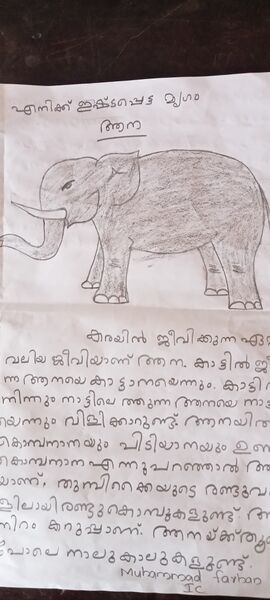 എനിക്ക് ഇഷ്ടപ്പെട്ട മൃഗം
ആന
കരയിൽ ജീവിക്കുന്ന ഏറ്റ
വലിയ ജീവിയാണ് ആന. കാട്ടിൽ ജീ
ന്ന ആനയെ കാട്ടാനയെന്നും. കാട്ടി
നിന്നും നാട്ടിലെത്തുന്ന ആനയെ നാട്ട
യെന്നും വിളിക്കാറുണ്ട്. ആനയിൽ
കൊമ്പനാനയും പിടിയാനയും ഉണ്ട
കൊമ്പനാന എന്നുപറഞ്ഞാൽ ആ
യാണ്, തുമ്പിക്കൈയുടെ രണ്ടുവ
ളിലായി രണ്ടുകൊമ്പുകളുണ്ട്. ആ
നിറം കറുപ്പാണ്. ആനയ്ക്ക് തൂ
പോലെ നാലുകാലുകളുണ്ട്.
Muhammad farhan
IC